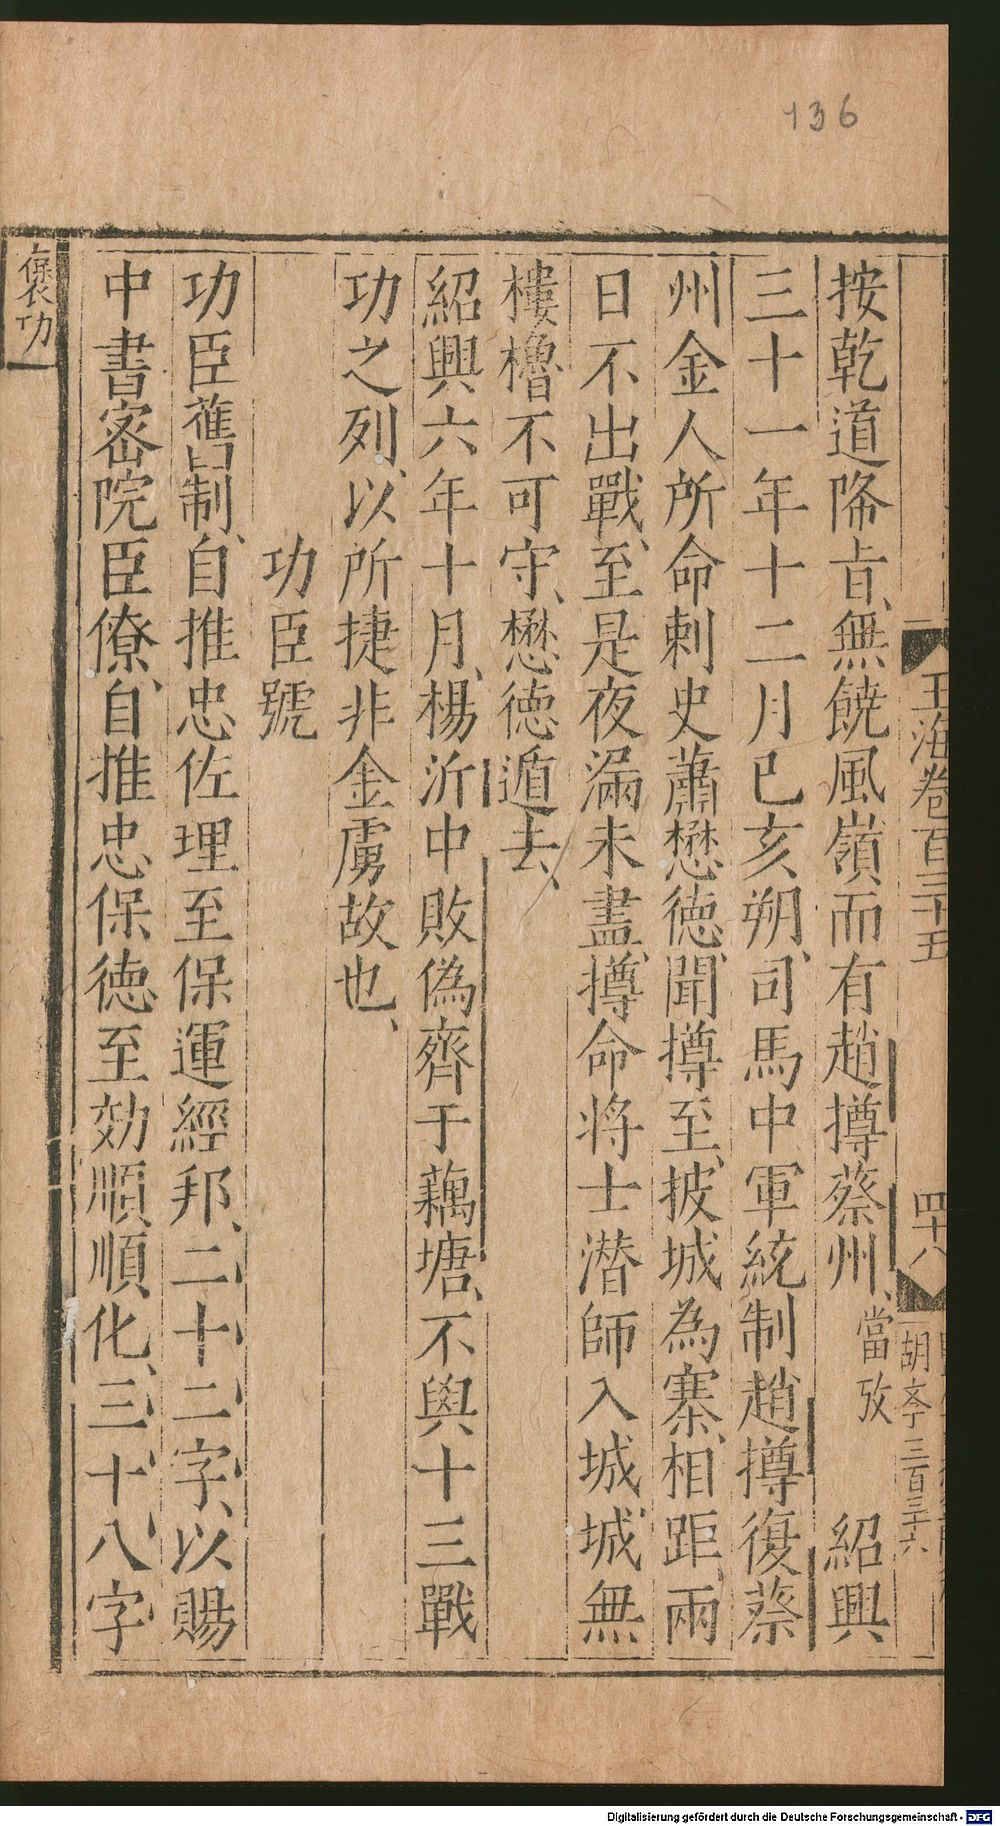 136
玉海卷百三十五
四十八
胡亭三百三十六
按乾道降旨、無饒風嶺而有趙撙蔡州、當攷 紹興
三十一年十二月已亥朔、司馬中軍統制趙撙復蔡
州金人所命刺史蕭懋德、聞撙至、披城為寨、相距、兩
日不出戰、至是夜漏未盡、撙命将士潛師入城、城無
樓櫓不可守、懋德遁去、
紹興六年十月、楊沂中敗偽齊于藕塘、不與十三戰
功之列、以所捷非金虜故也、
功臣號
功臣舊制、自推忠佐理至保運經邦、二十二字、以賜
中書密院臣僚、自推忠保德至効順順化、三十八字
褒功
Digitalisierung gefördert durch die Deutsche Forschungsgemeinschaft - DFG